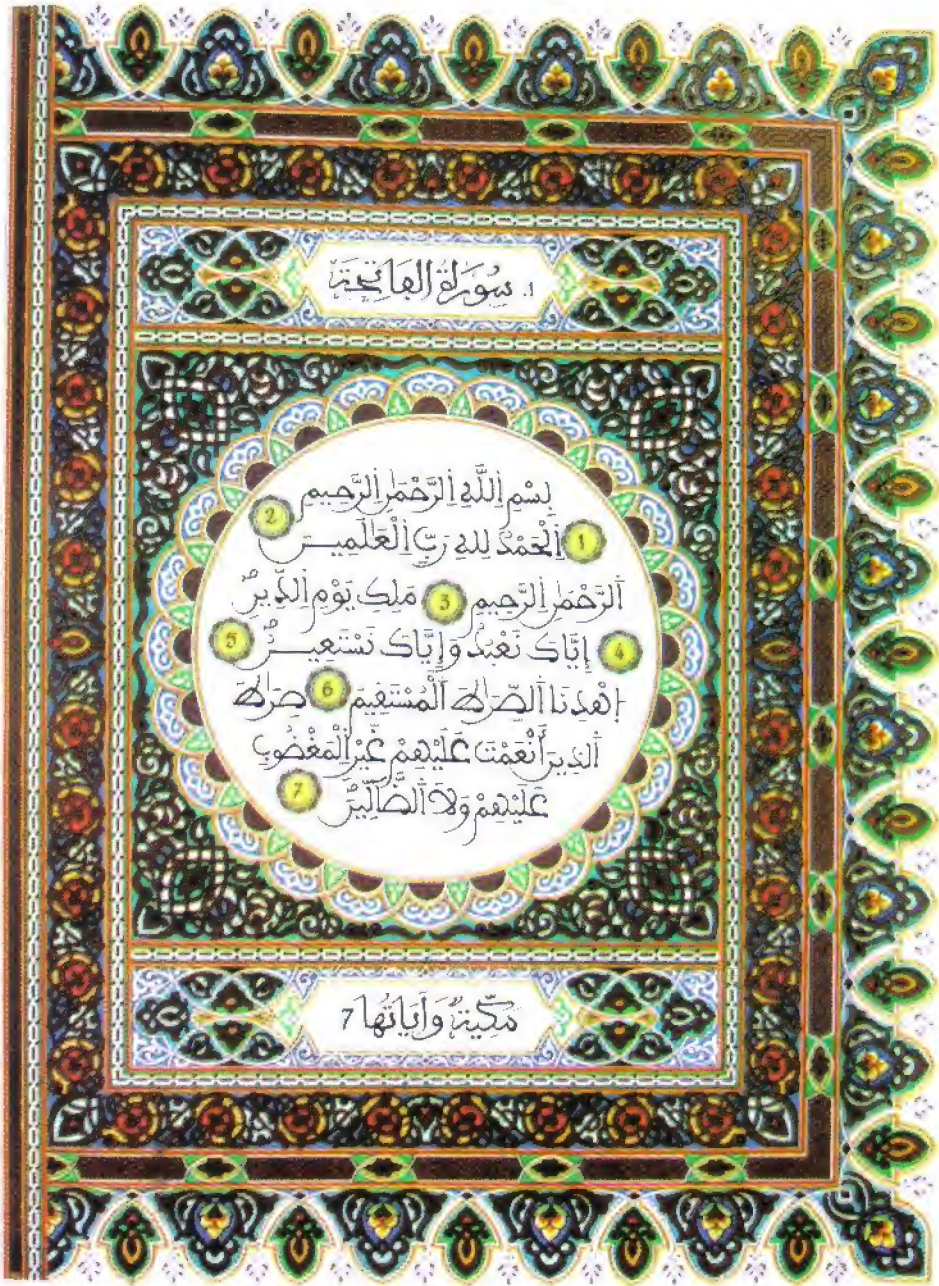 1. سُورَةُ الفَاتِحَة
بِسْمِ اِللَّهِ اِلرَّحْمَٰنِ اِلرَّحِيمِ
1 اِلْحَمْدُ لِلهِ رَبِّ اِلْعَٰلَمِينَ 2
اَلرَّحْمَٰنِ اِلرَّحِيمِ 3 مَلِكِ يَوْمِ اِلدِّينِ
4 إِيَّاكَ نَعْبُدُ وَإِيَّاكَ نَسْتَعِينُ 5
اِهْدِنَا اَلصِّرَٰطَ اَلْمُسْتَقِيمَ 6 صِرَٰطَ
اَلذِينَ أَنْعَمْتَ عَلَيْهِمْ غَيْرِ اِلْمَغْضُوبِ
عَلَيْهِمْ وَلَا اَلضَّآلِّينَ 7
مَكِّيَّةٌ وَآيَاتُهَا 7